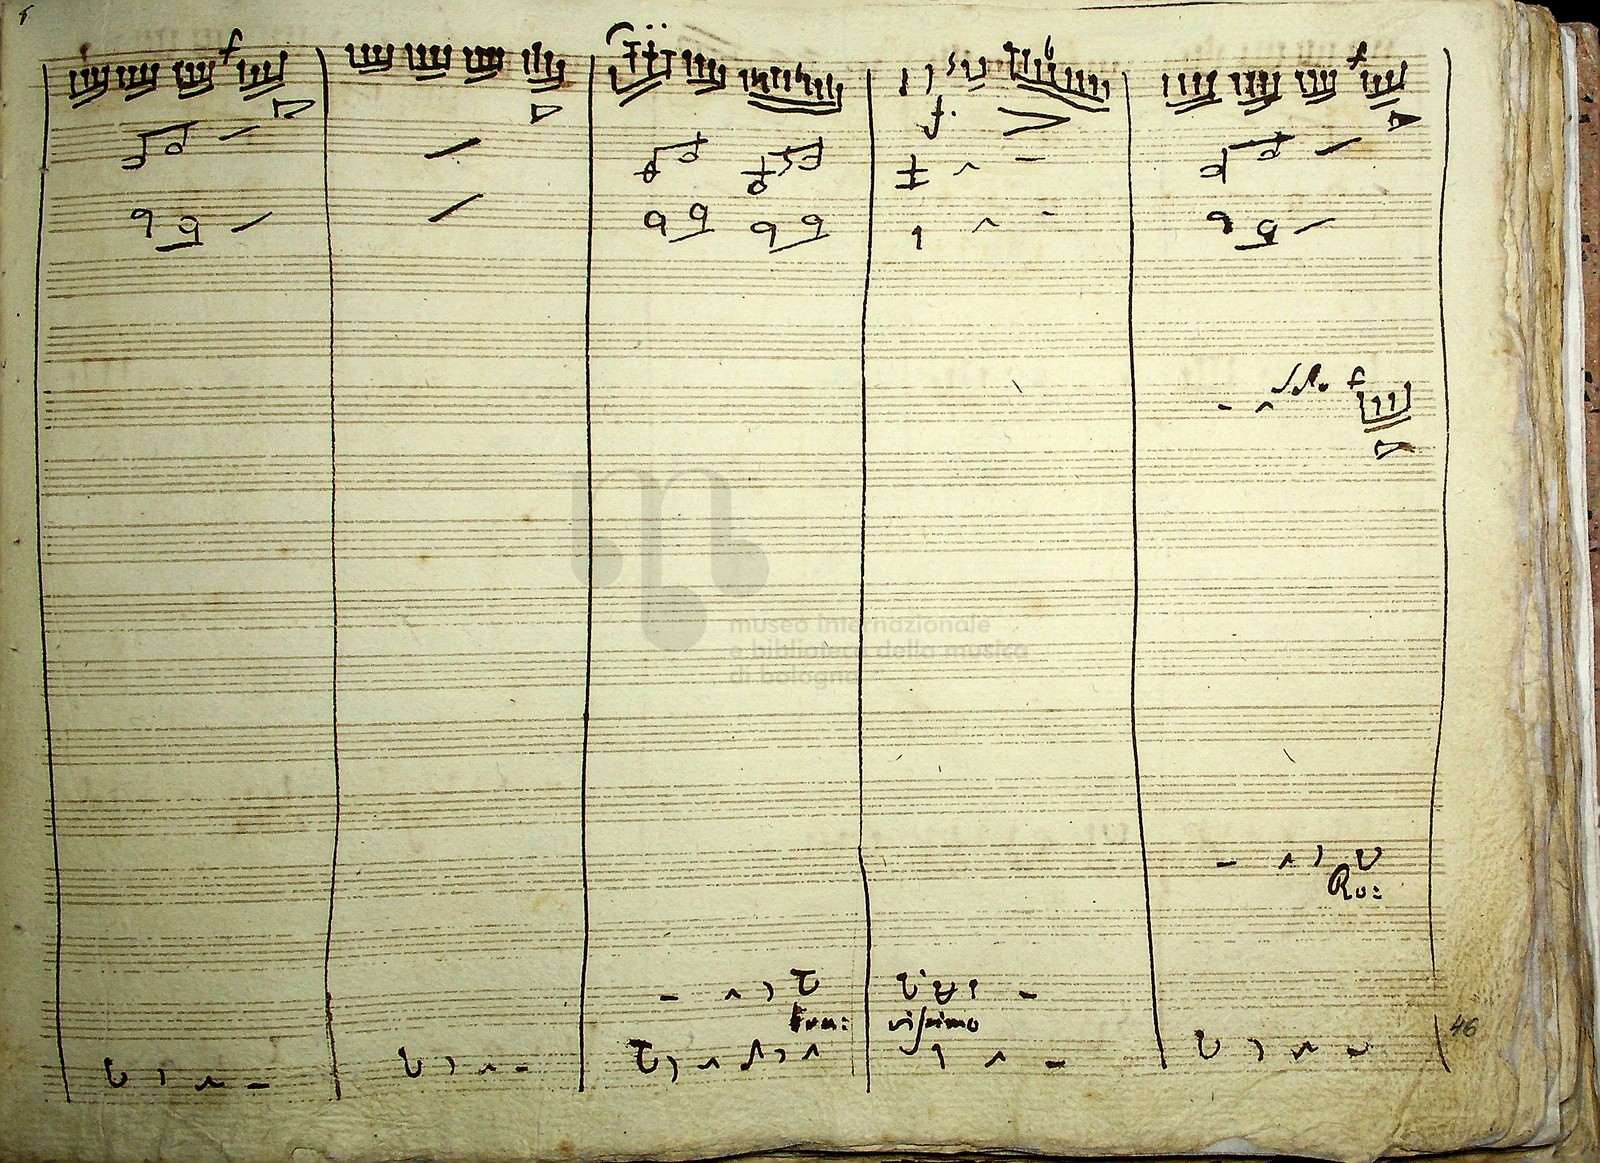 f
f.
f
Solo f
museo internazionale
e biblioteca della musica
di bologna
Ro:
bra: vissimo
46